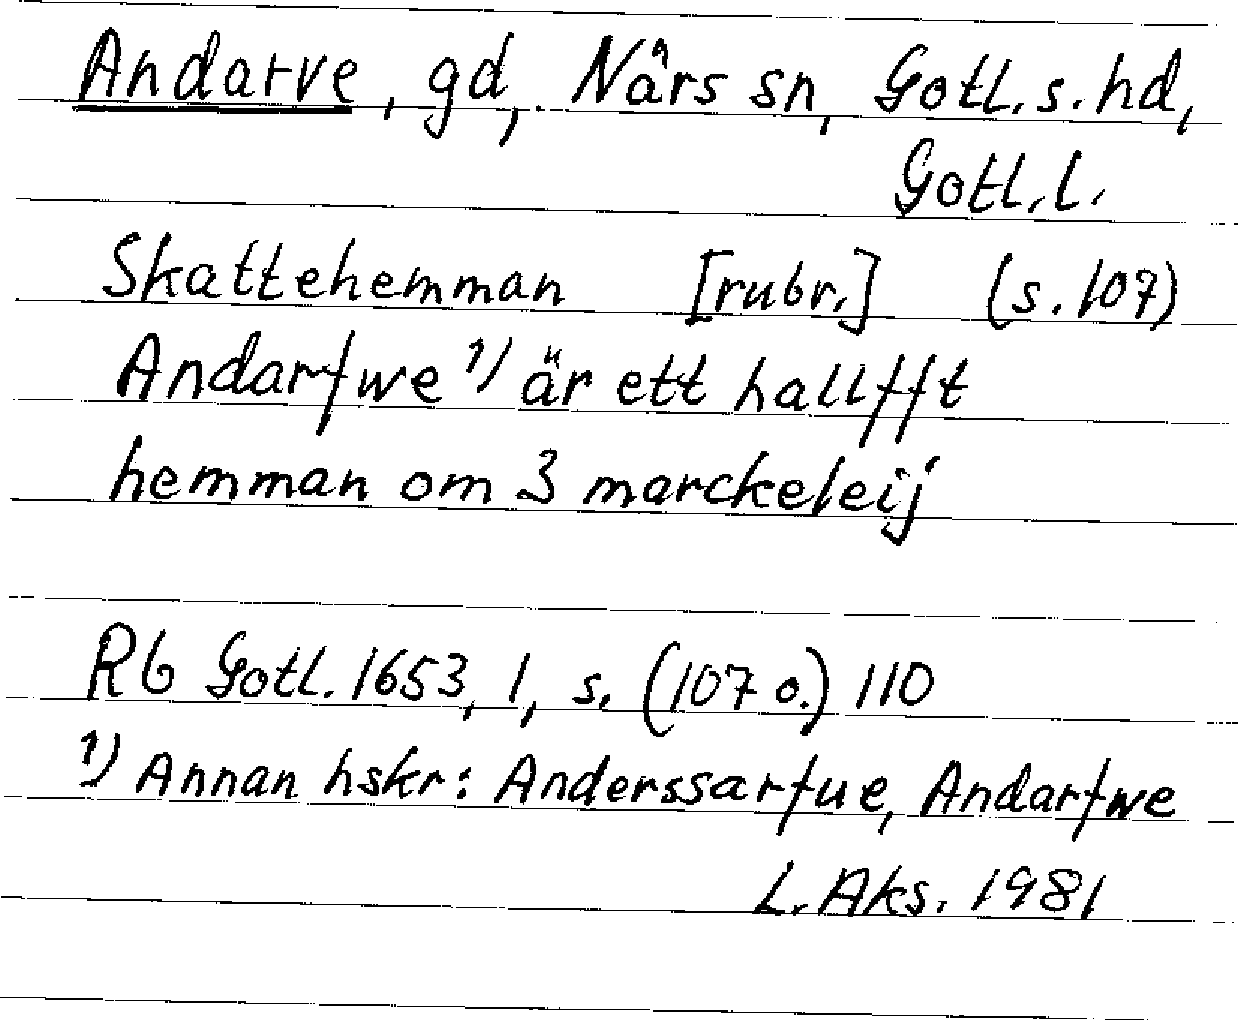 Andarve, gd, Närs sn, Gotl. s. hd,
Gotl. l.
Skattehemman [rubr.] (s. 107)
Andarfwe 1) är ett hallfft
hemman om 3 marckeleij
Rb Gotl. 1653, 1, s. (107 o.) 110
1) Annan hskr: Anderssarfue, Andarfwe
L. Aks. 1981